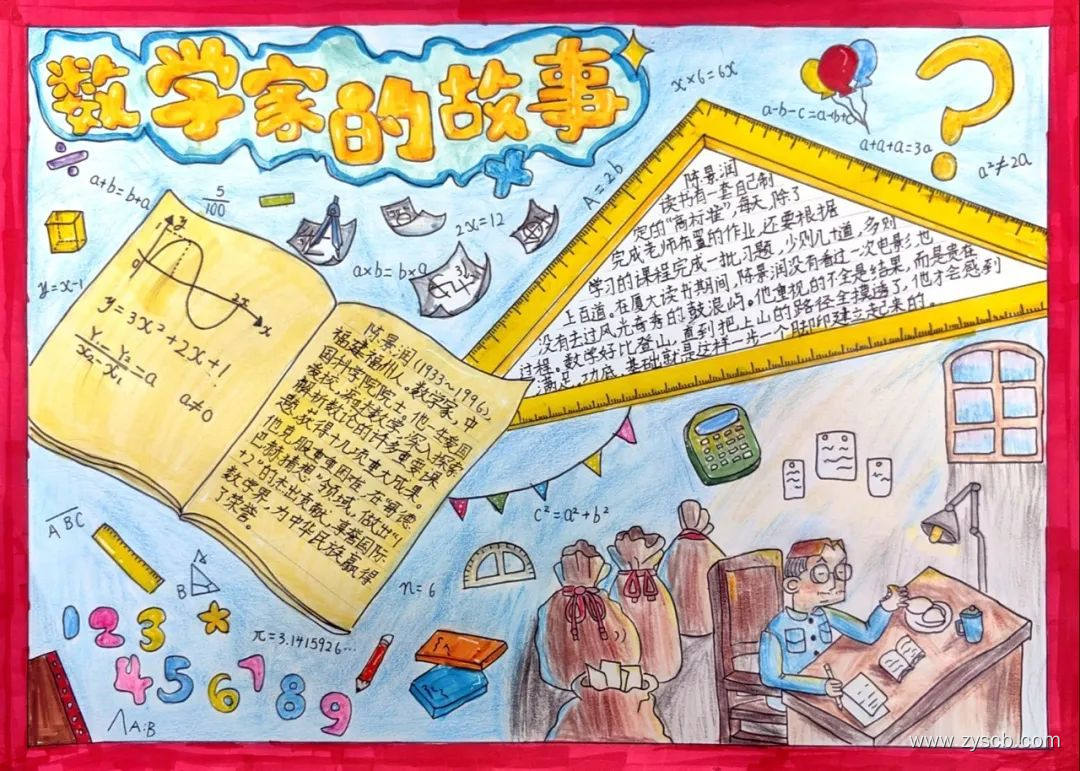 数学家的故事
x×6=6x
a-b-c=a-b+c
a+a+a=3a
a²≠2a
A=2b
a+b=b+a
5/100
2x=12
a×b=b×a
y=x-1
y
0
2π
x
y=3x²+2x+1
a≠0
陈景润(1933~1996),
福建福州人。数学家,中
国科学院院士。他一生爱国
爱校,
题,获得十几项重大成果。
他克服重重困难,在“哥德
巴赫猜想”领域,做出“1
+2”的杰出贡献,享誉国际
数学界,为中华民族赢得
了荣誉。
陈景润
读书有一套自己制
定的“高标准”,每天,除了
完成老师布置的作业,还要根据
学习的课程完成一批习题,少则几十道,多则
上百道。在厦大读书期间,陈景润没有看过一次电影,也
没有去过风光奇秀的鼓浪屿。他重视的不全是结果,而是贵在
过程。数学好比登山,直到把上山的路径全摸清了,他才会感到
满足,功底、基础就是这样一步一个脚印建立起来的。
c²=a²+b²
ABC
A
B
n=6
π=3.1415926…
1 2 3
4 5 6 7 8 9
A:B
www.zyscb.com